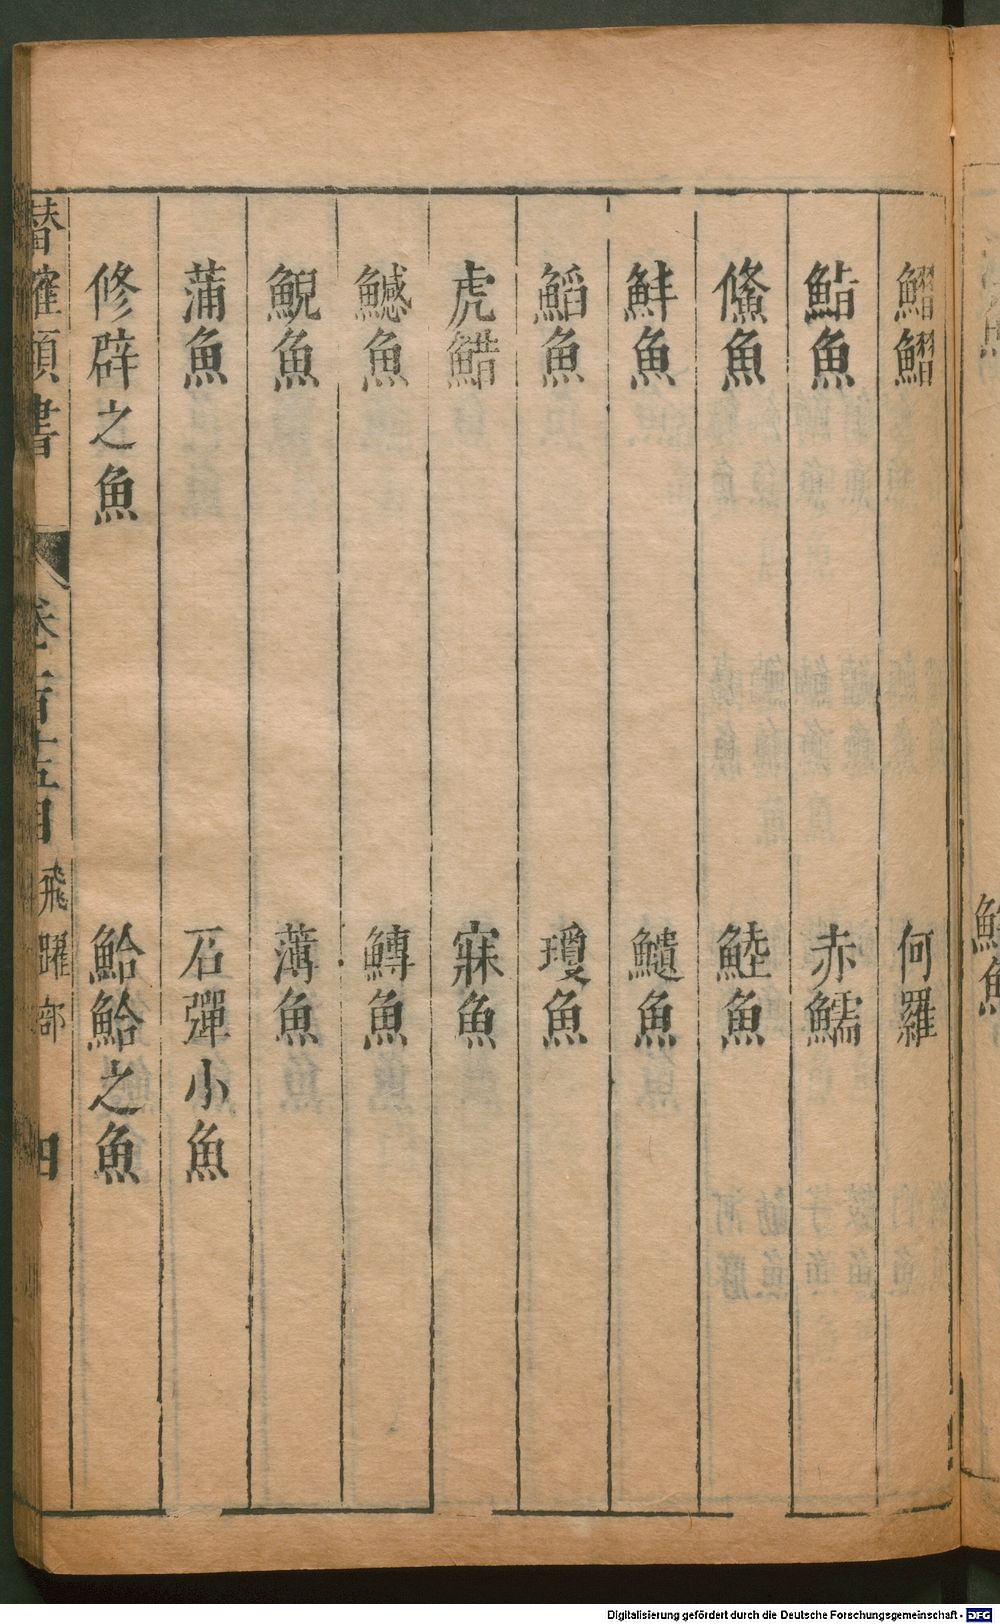 鰼鰼 何羅
鮎魚 赤鱬
鯈魚 鯥魚
鮮魚 鱶魚
鰩魚 瓊魚
虎䱜 寐魚
鱤魚 鱄魚
鯢魚 薄魚
蒲魚 石彈小魚
修辟之魚 鮯鮯之魚
潛確類書 卷一百十五目 飛躍部 四
Digitalisierung gefördert durch die Deutsche Forschungsgemeinschaft - DFG